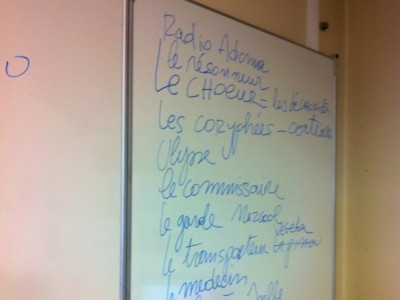 Radio Adoma
le résonneur
Le CHOEUR = les
Les COZYPHÉES - conteurs
Ulysse
le commissaire
le garde
le transporteur
le medecin